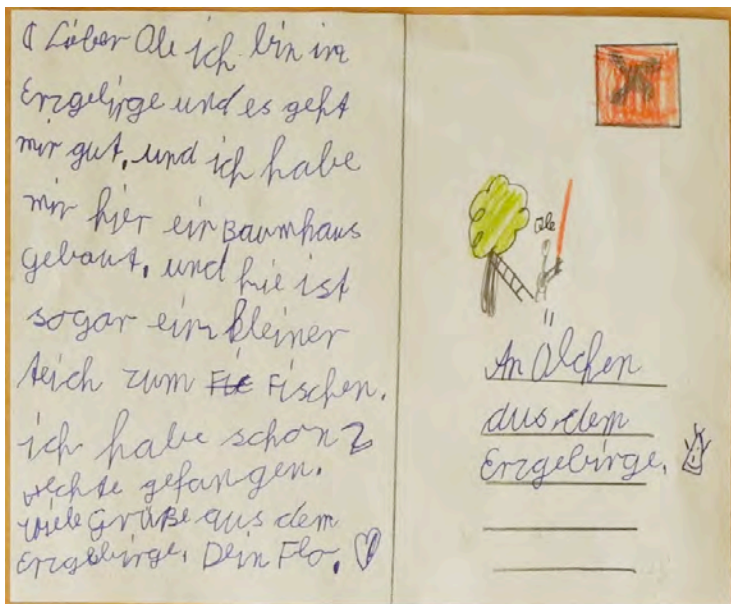 Lieber Ole ich bin im
Erzgebirge und es geht
mir gut, und ich habe
mir hier ein Baumhaus
gebaut, und hie ist
sogar ein kleiner
teich zum Fischen.
ich habe schon 2
gefangen.
viele Grüße aus dem
Erzgebirge, Dein Flo.
Ole
An Ölchen
aus dem
Erzgebirge.